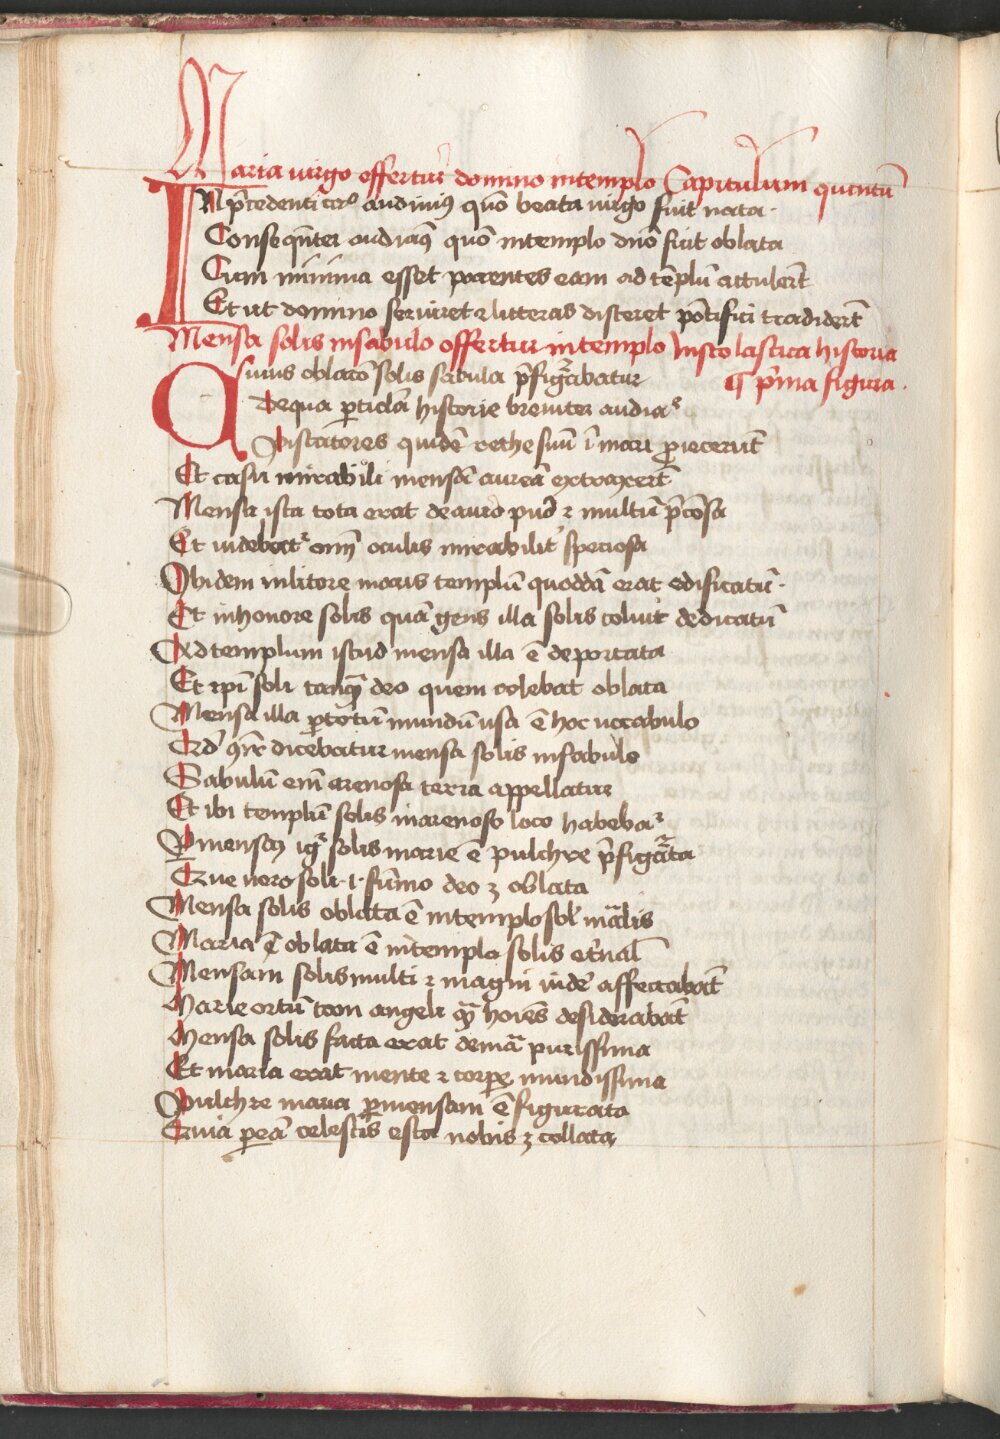 Maria uirgo offertur domino in templo Capitulum quintū
IN p̄cedenti cap̄o audiuimꝰ quō beata uirgo fuit nata ·
Conseqn̄ter audiamꝰ quō in templo dnō fuit oblata
Cum minima esset parentes eam ad tēplū attuleēt
Et ut domino seruiret ⁊ litteras disceret pōtifici tradideēt
Mensa solis in sabulo offertur in templo In scolastica historia
¶ p̄ma figura .
Cuius oblacō solis sabula p̄figᷓabatur
De qua ꝑticlā historie breuiter audiaᷣ
Piscatores quidē rethe suū ī mari ꝓiecerūt
Et casu mirabili mensā aureā extraxeēt
Mensa ista tota erat de auro puro ⁊ multū p̄cōsa
Et uidebatᷣ om̄ī oculis mirabilitᷣ speciosa
Ibidem in litore maris templū quoddā erat edificatū ·
Et in honore solis quā gens illa solis coluit dedicatū
Ad templum istud mensa illa ē deportata
Et ip̄i soli tanqᷓ deo quem colebat oblata
Mensa illa ꝑ totū mundū usa ē hoc uocabulo
Qd̓ ꝯn̄r dicebatur mensa solis in sabulo
Sabulū em̄ arenosa terra appellatur
Et ibi templū solis in arenoso loco habebaᷣ
Ꝑ mensaꝫ igᷣ solis marie ē pulchre p̄figᷓata
Que uero soli .i. sūmo deo ꝫ oblata
Mensa solis oblata ē in templo sol̓ māl̓is
Maria ē oblata ē in templo solis et̓nal̓
Mensam solis multi ⁊ magni uid̓e affectabāt
Marie ortū tam angeli qᷓ hoīes desiderabāt
Mensa solis facta erat de mā purissima
Et maria erat mente ⁊ corpe mundissima
Pulchre maria ꝑ mensam ē figurata
Quia ꝑ eā celestis esca nobis ꝫ collata